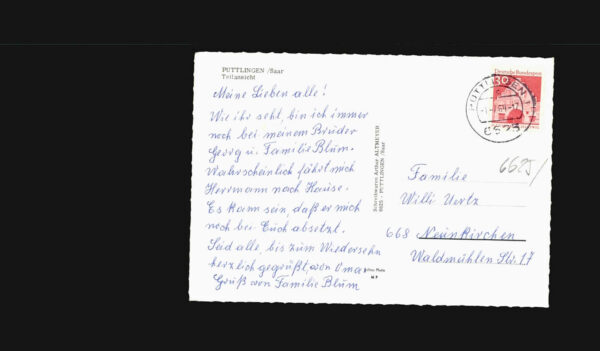 PÜTTLINGEN /Saar
Teilansicht
Meine Lieben alle!
Wie ihr seht, bin ich immer
noch bei meinem Bruder
Georg u. Familie Blum.
Wahrscheinlich fährt mich
Herrmann nach Hause.
Es kann sein, daß er mich
noch bei Euch absetzt.
Seid alle, bis zum Wiedersehn
herzlich gegrüßt, von Oma
Gruß von Familie Blum
Schreibwaren Arthur ALTMEYER
6625 - PÜTTLINGEN /Saar
Deutsche Bundespost
PÜTTLINGEN
6625
6625/
Familie
Willi Uertz
668 Neunkirchen
Waldmühlen Str. 17